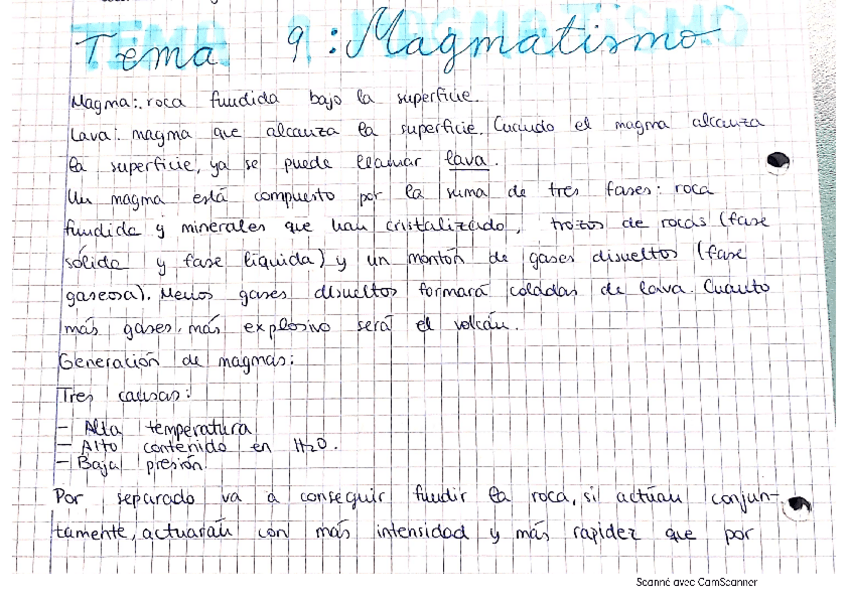 Tema 9: Magmatismo
Magma: roca fundida bajo la superficie.
Lava: magma que alcanza la superficie. Cuando el magma alcanza
la superficie, ya se puede llamar lava.
Un magma está compuesto por la suma de tres fases: roca
fundida y minerales que han cristalizado, trozos de rocas (fase
sólida y fase líquida) y un montón de gases disueltos (fase
gaseosa). Menos gases disueltos formará coladas de lava. Cuanto
más gases, más explosivo será el volcán.
Generación de magmas:
Tres causas:
- Alta temperatura
- Alto contenido en H2O.
- Baja presión
Por separado va a conseguir fundir la roca, si actúan conjun-
tamente, actuarán con más intensidad y más rapidez que por
Scanné avec CamScanner